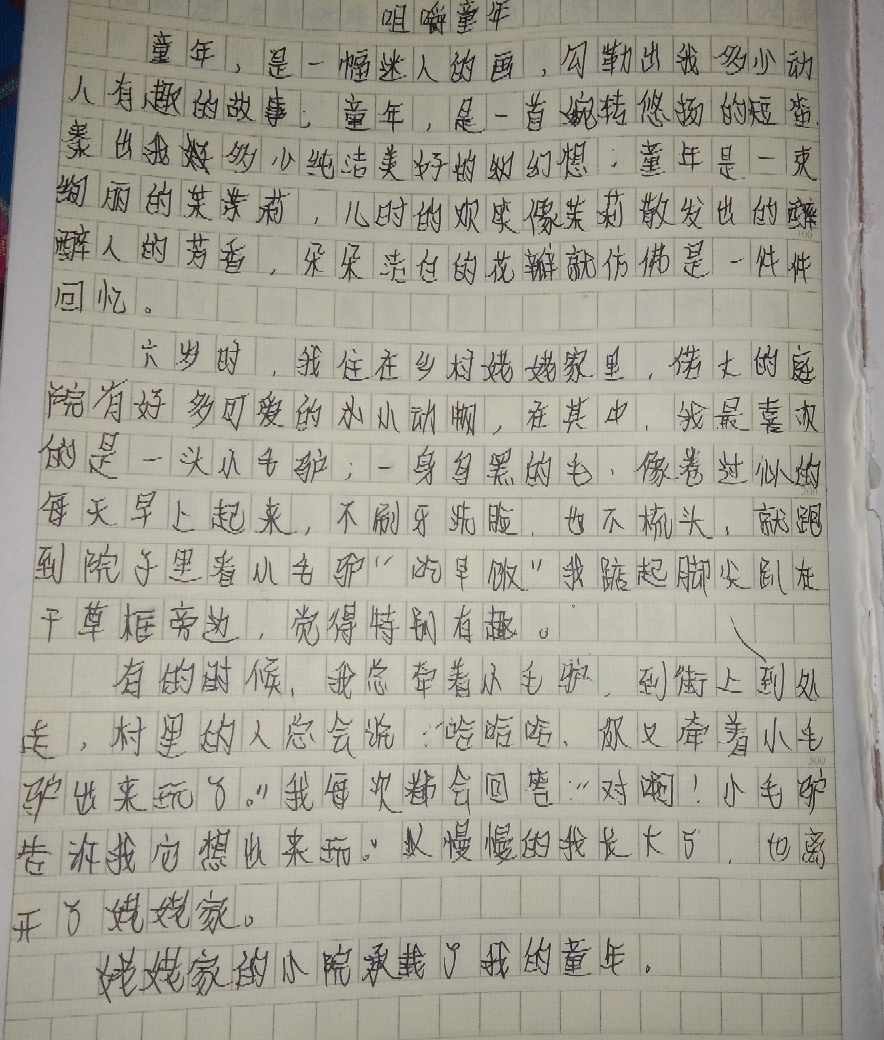 咀嚼童年
童年，是一幅迷人的画，勾勒出我多少动
人有趣的故事；童年，是一首婉转悠扬的短笛，
奏出我多少纯洁美好的幻想；童年是一束
绚丽的茉莉，儿时的欢笑像茉莉散发出的
醉人的芳香，朵朵洁白的花瓣就仿佛是一件件
回忆。
六岁时，我住在乡村姥姥家里，偌大的庭
院有好多可爱的小动物，在其中，我最喜欢
的是一头小毛驴；一身乌黑的毛，像卷过似的
每天早上起来，不刷牙洗脸，也不梳头，就跑
到院子里看小毛驴"吃早饭"我踮起脚尖趴在
干草框旁边，觉得特别有趣。
有的时候，我总牵着小毛驴，到街上到处
走，村里的人总会说："哈哈哈、你又牵着小毛
驴出来玩了。"我每次都会回答："对啊！小毛驴
告诉我它想出来玩。"慢慢的我长大了，也离
开了姥姥家。
姥姥家的小院承载了我的童年。
300